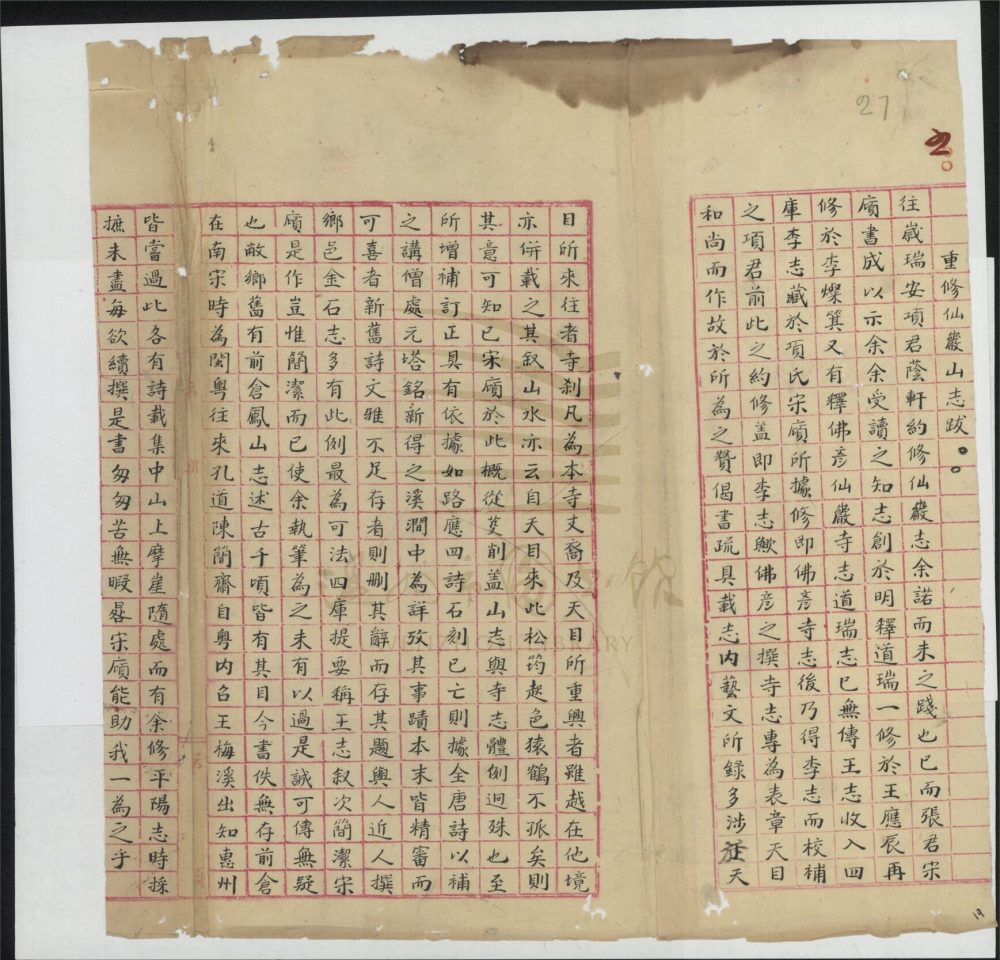 27
五
重修仙巖山志跋
往歲瑞安項君蔭軒約修仙巖志余諾而未之踐也已而張君宋
廎書成以示余余受讀之知志創於明釋道瑞一修於王應辰再
修於李燦箕又有釋佛彥仙巖寺志道瑞志已無傳王志收入四
庫李志藏於項氏宋廎所據修即佛彥寺志後乃得李志而校補
之項君前此之約修蓋即李志歟佛彥之撰寺志專為表章天目
和尚而作故於所為之贊偈書疏具載志內藝文所錄多涉天
目所來往者寺剎凡為本寺支裔及天目所重興者雖越在他境
亦併載之其叙山水亦云自天目來此松筠起色猿鶴不孤矣則
其意可知已宋廎於此概從芟削蓋山志與寺志體例迥殊也至
所增補訂正具有依據如路應四詩石刻已亡則據全唐詩以補
之講僧處元塔銘新得之溪澗中為詳攷其事蹟本末皆精審而
可喜者新舊詩文雅不足存者則刪其辭而存其題與人近人撰
鄉邑金石志多有此例最為可法四庫提要稱王志叙次簡潔宋
廎是作豈惟簡潔而已使余執筆為之未有以過是誠可傳無疑
也敝鄉舊有前倉鳳山志述古千頃皆有其目今書佚無存前倉
在南宋時為閩粵往來孔道陳簡齋自粵內召王梅溪出知惠州
皆嘗過此各有詩載集中山上摩崖隨處而有余修平陽志時採
摭未盡每欲續撰是書匆匆苦無暇晷宋廎能助我一為之乎
19